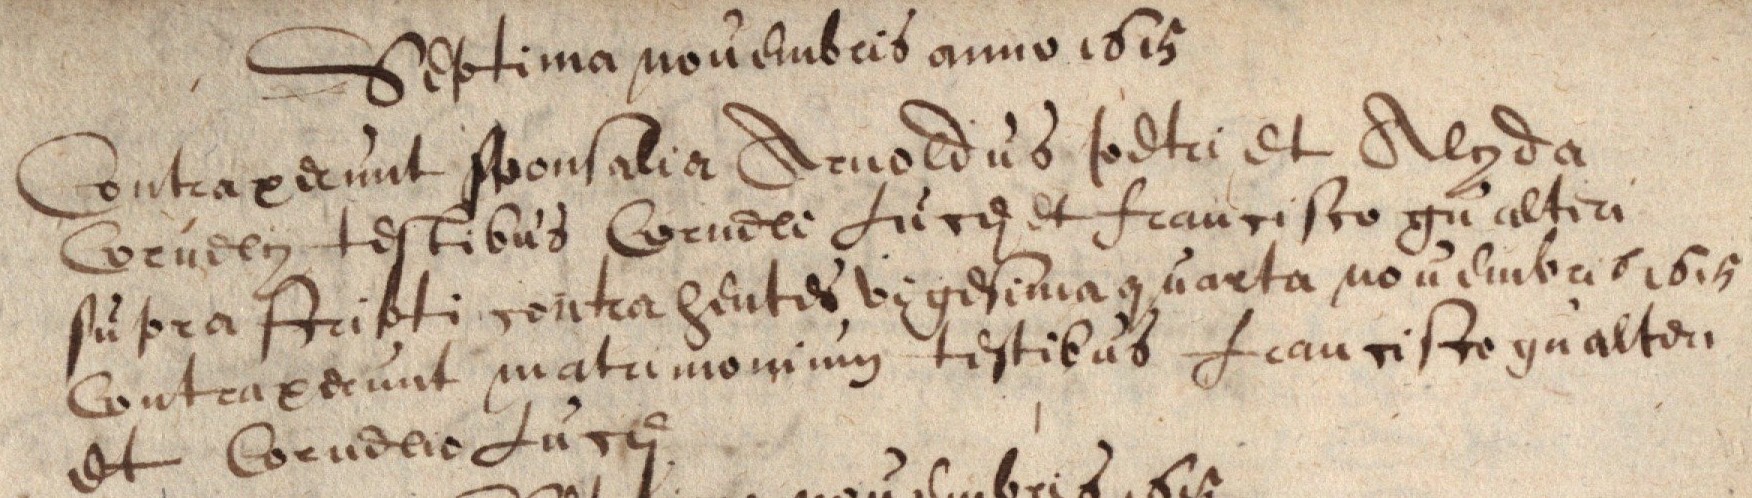 Septima novembris anno 1615
Contraxerunt sponsalia Arnoldus petri et Alyda
Cornelij testibus Corneli Lucę et francisco gualteri
supra scripti contrahentes vigesima quarta novembris 1615
Contraxerunt matrimonium testibus francisco gualteri
et Cornelio Lucę
novembris 1615